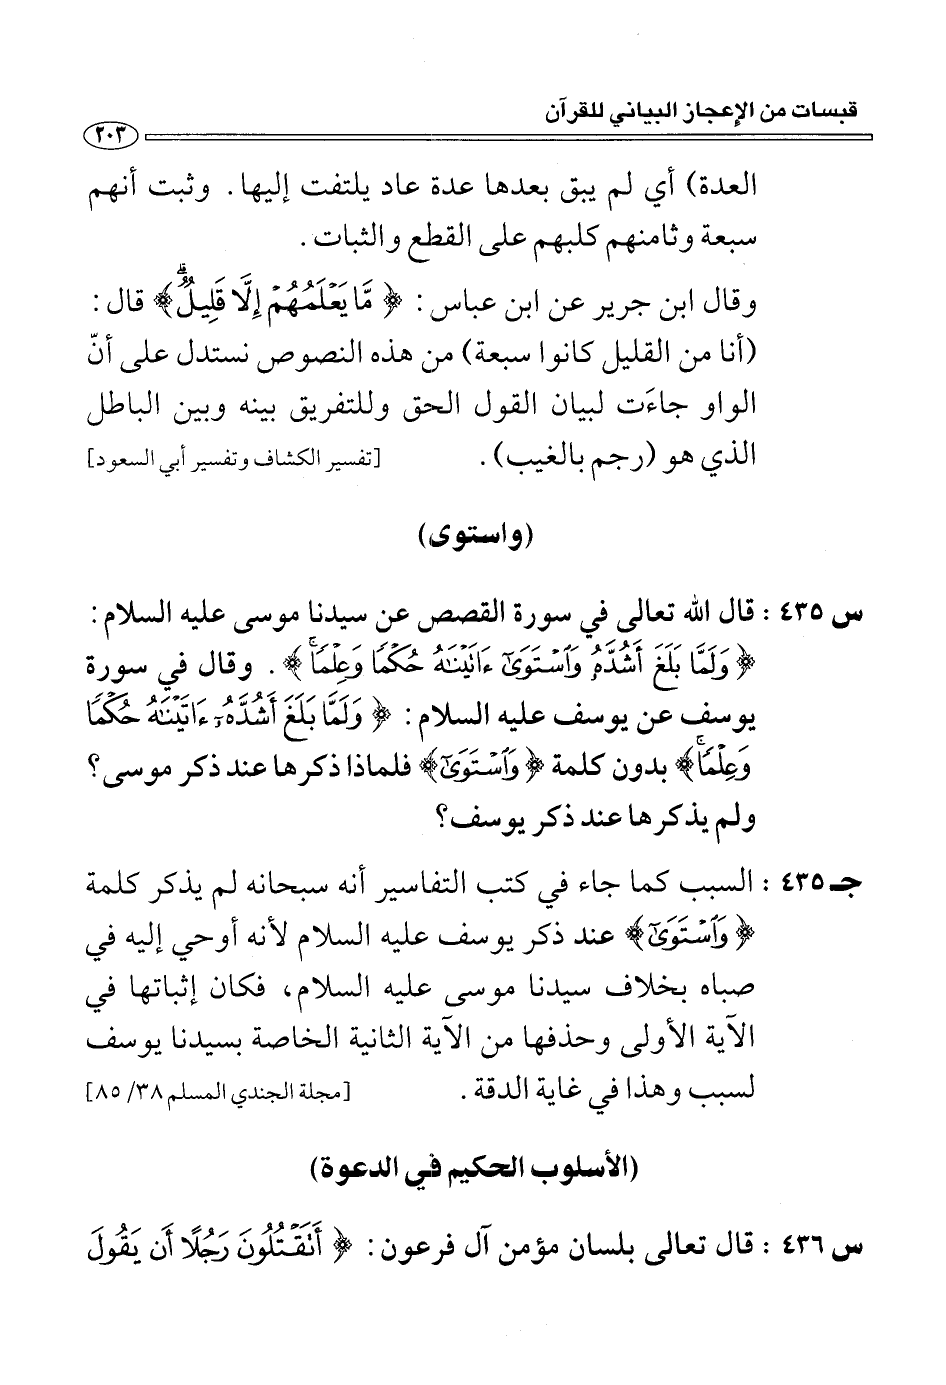 قبسات من الإعجاز البياني للقرآن
٢٠٣
العدة) أي لم يبق بعدها عدة عاد يلتفت إليها. وثبت أنهم
سبعة وثامنهم كلبهم على القطع والثبات.
وقال ابن جرير عن ابن عباس: ﴿مَّا يَعْلَمُهُمْ إِلَّا قَلِيلٌ ۗ﴾ قال:
(أنا من القليل كانوا سبعة) من هذه النصوص نستدل على أنّ
الواو جاءَت لبيان القول الحق وللتفريق بينه وبين الباطل
الذي هو (رجم بالغيب). [تفسير الكشاف وتفسير أبي السعود]
(واستوى)
س ٤٣٥: قال الله تعالى في سورة القصص عن سيدنا موسى عليه السلام:
﴿وَلَمَّا بَلَغَ أَشُدَّهُ وَٱسْتَوَىٰٓ ءَاتَيْنَٰهُ حُكْمًا وَعِلْمًا ۚ﴾. وقال في سورة
يوسف عن يوسف عليه السلام: ﴿وَلَمَّا بَلَغَ أَشُدَّهُۥٓ ءَاتَيْنَٰهُ حُكْمًا
وَعِلْمًا ۚ﴾ بدون كلمة ﴿وَٱسْتَوَىٰٓ﴾ فلماذا ذكرها عند ذكر موسى؟
ولم يذكرها عند ذكر يوسف؟
جـ ٤٣٥: السبب كما جاء في كتب التفاسير أنه سبحانه لم يذكر كلمة
﴿وَٱسْتَوَىٰٓ﴾ عند ذكر يوسف عليه السلام لأنه أوحي إليه في
صباه بخلاف سيدنا موسى عليه السلام، فكان إثباتها في
الآية الأولى وحذفها من الآية الثانية الخاصة بسيدنا يوسف
لسبب وهذا في غاية الدقة. [مجلة الجندي المسلم ٣٨/ ٨٥]
(الأسلوب الحكيم في الدعوة)
س ٤٣٦: قال تعالى بلسان مؤمن آل فرعون: ﴿أَتَقْتُلُونَ رَجُلًا أَن يَقُولَ